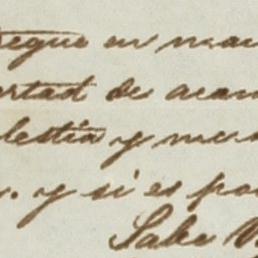 tregue en man
ertad de acam
olestia y me
. y si es po
Sabe V